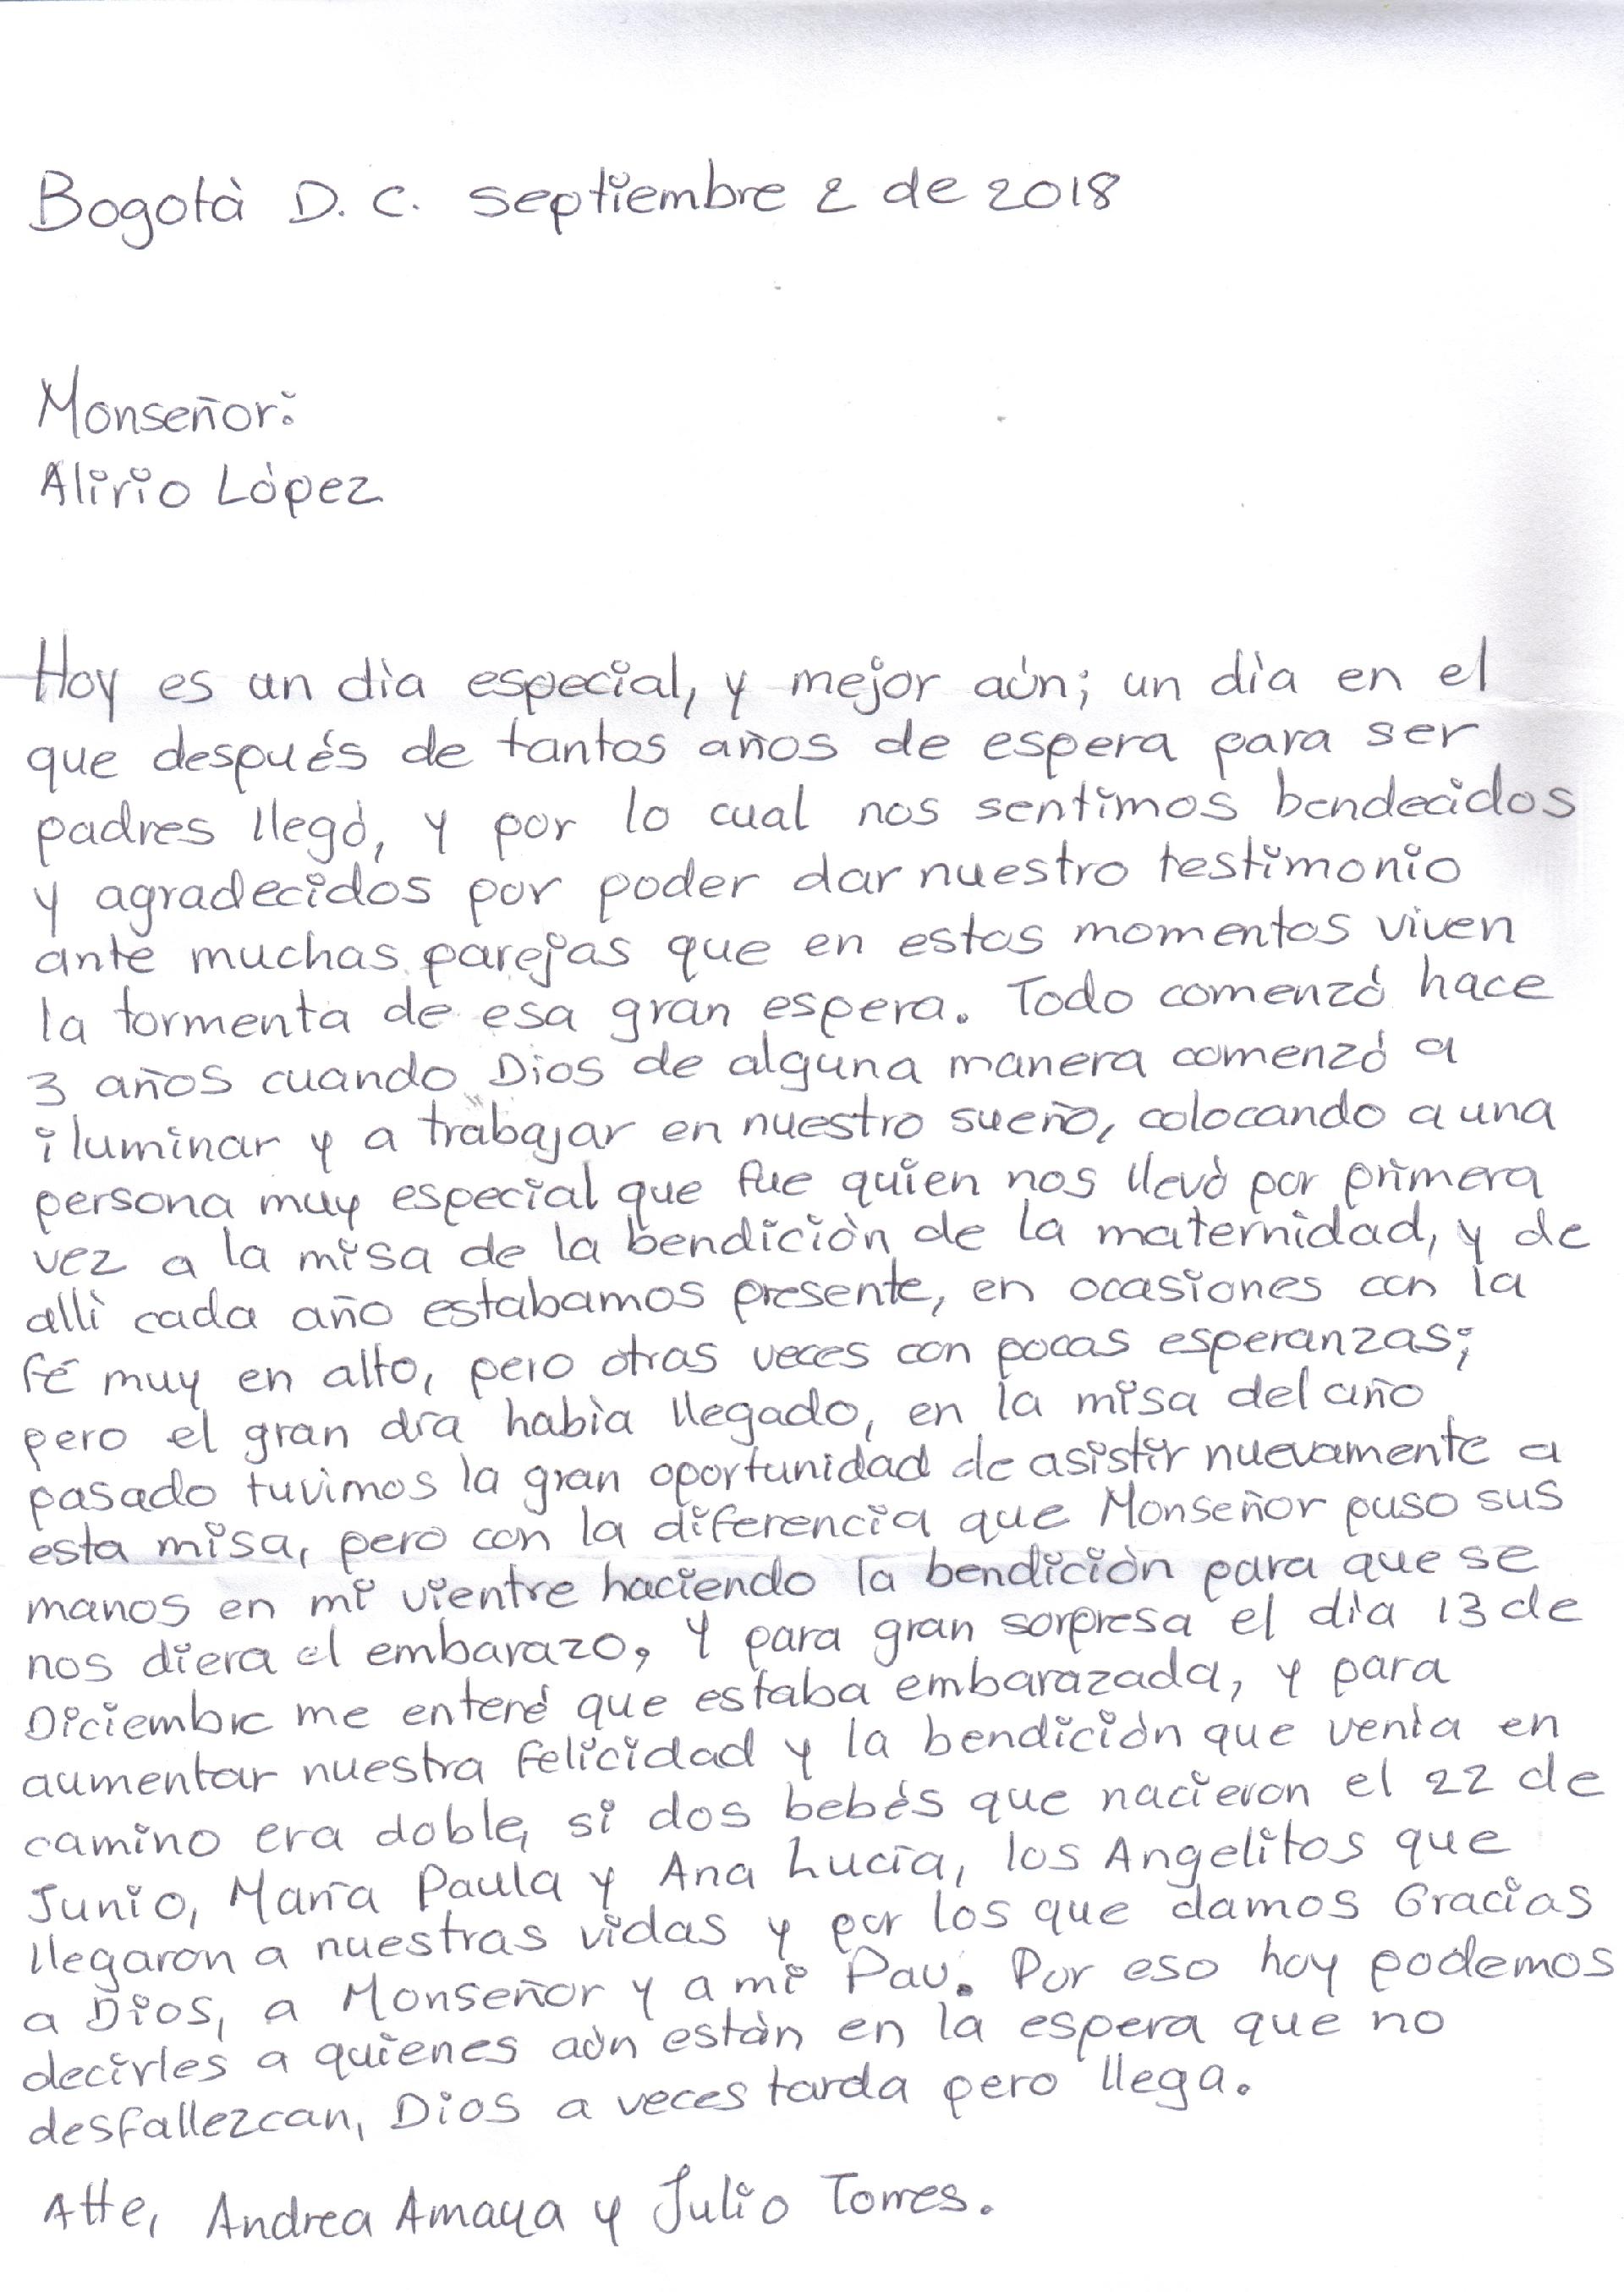 Bogotà D. C. septiembre 2 de 2018
Monseñor:
Alirio Lòpez
Hoy es un dìa especial, y mejor aùn; un dìa en el
que después de tantos años de espera para ser
padres llegò, y por lo cual nos sentimos bendecidos
y agradecidos por poder dar nuestro testimonio
ante muchas parejas que en estos momentos viven
la tormenta de esa gran espera. Todo comenzó hace
3 años cuando Dios de alguna manera comenzó a
iluminar y a trabajar en nuestro sueño, colocando a una
persona muy especial que fue quien nos llevò por primera
vez a la misa de la bendiciòn de la maternidad, y de
allì cada año estabamos presente, en ocasiones con la
fé muy en alto, pero otras veces con pocas esperanzas;
pero el gran día habìa llegado, en la misa del año
pasado tuvimos la gran oportunidad de asistir nuevamente a
esta misa, pero con la diferencia que Monseñor puso sus
manos en mi vientre haciendo la bendiciòn para que se
nos diera el embarazo, y para gran sorpresa el dìa 13 de
Diciembre me enteré que estaba embarazada, y para
aumentar nuestra felicidad y la bendiciòn que venìa en
camino era doble, si dos bebés que nacieron el 22 de
Junio, María Paula y Ana Lucía, los Angelitos que
llegaron a nuestras vidas y por los que damos Gracias
a Dios, a Monseñor y a mi Pau. Por eso hoy podemos
decirles a quienes aùn estàn en la espera que no
desfallezcan, Dios a veces tarda pero llega.
Atte, Andrea Amaya y Julio Torres.